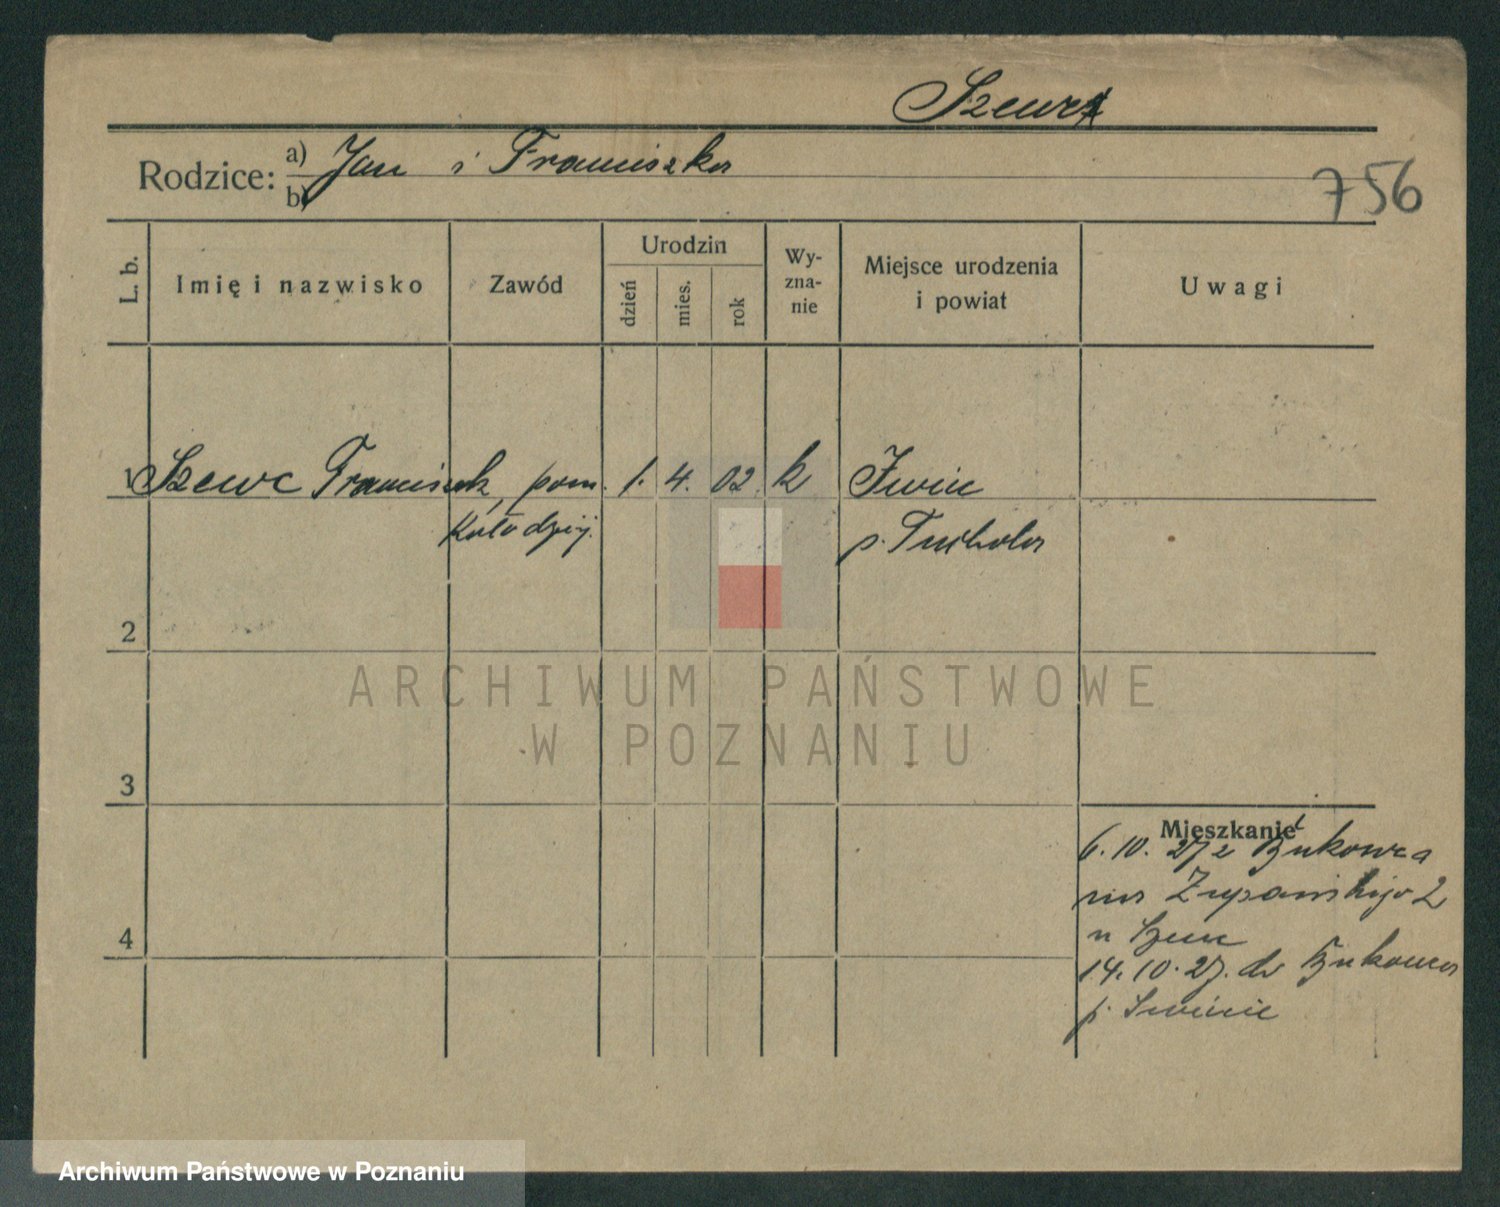 Szewc
Rodzice: a) Jan i Franciszka
b)
756
L. b.
Imię i nazwisko
Zawód
Urodzin
dzień
mies.
rok
Wy-
zna-
nie
Miejsce urodzenia
i powiat
Uwagi
1 Szewc Franciszek, pom. 1. 4. 02. k Iwiec
kołodziej. p. Tuchola
2
3
4
Mieszkanie
6. 10. 27 z Bukowca
na Żupańskiego 2
u Szewc
14. 10. 27. do Bukowca
p. Świecie
ARCHIWUM PAŃSTWOWE
W POZNANIU
Archiwum Państwowe w Poznaniu